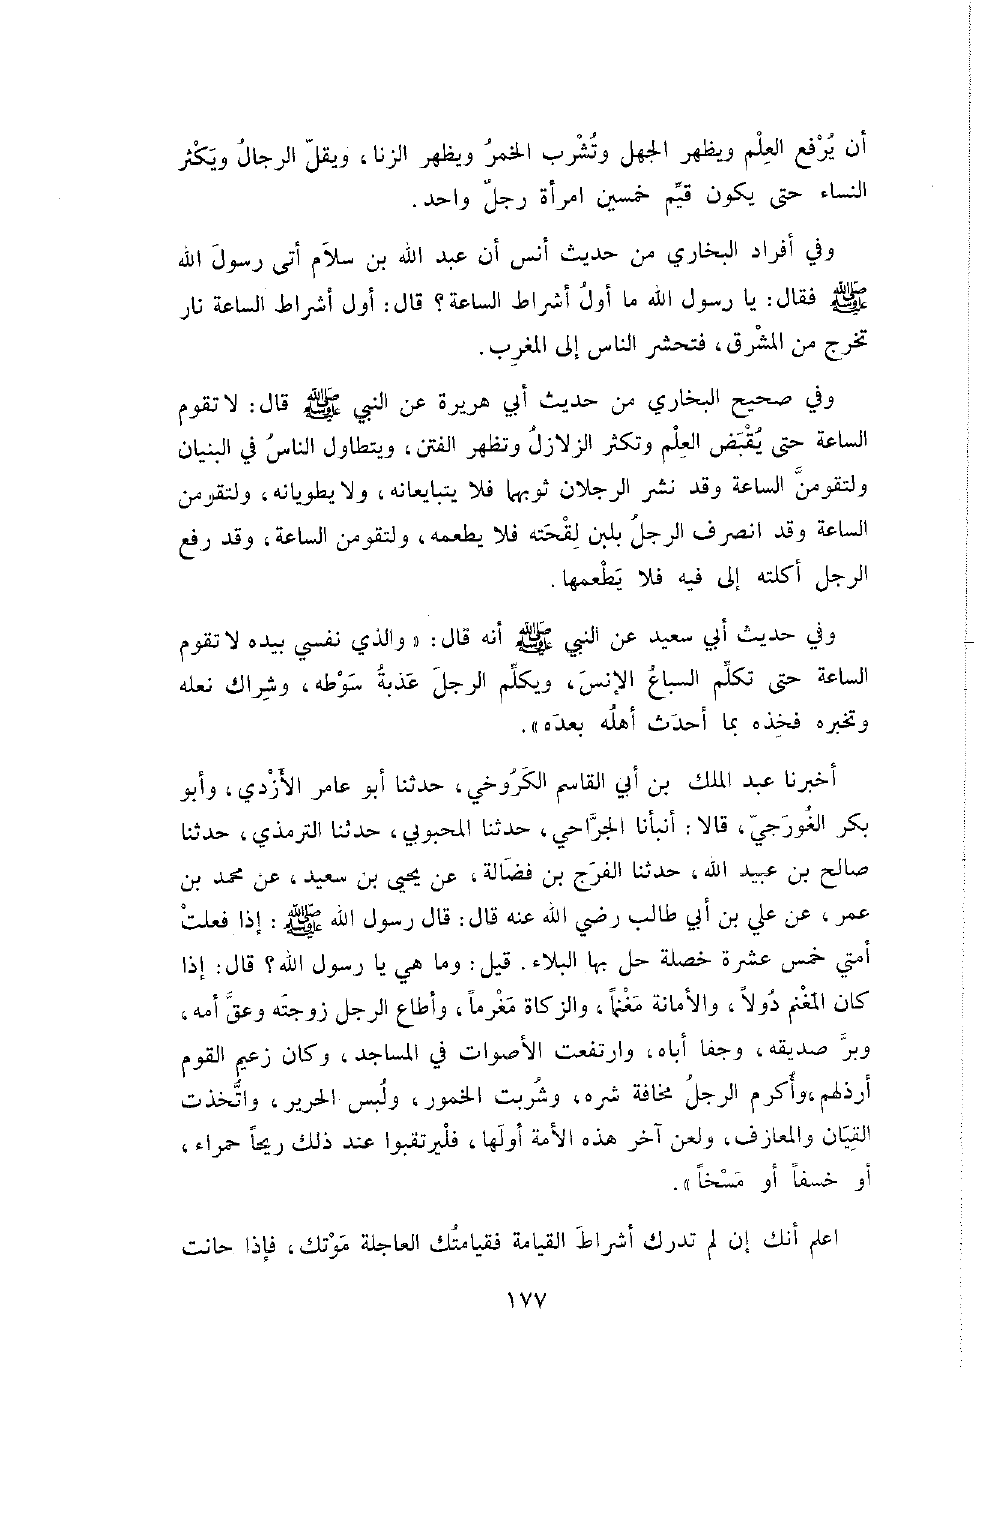 أن يُرْفع العِلْم ويظهر الجهل وتُشْرب الخمرُ ويظهر الزنا، ويقلّ الرجالُ ويَكْثر
النساء حتى يكون قيِّم خمسين امرأة رجلٌ واحد.
وفي أفراد البخاري من حديث أنس أن عبد الله بن سلاَم أتى رسولَ الله
ﷺ فقال: يا رسول الله ما أولُ أشراط الساعة؟ قال: أول أشراط الساعة نار
تخرج من المشْرق، فتحشر الناس إلى المغرِب.
وفي صحيح البخاري من حديث أبي هريرة عن النبي ﷺ قال: لا تقوم
الساعة حتى يُقْبَض العِلْم وتكثر الزلازلُ وتظهر الفتن، ويتطاول الناسُ في البنيان
ولتقومنَّ الساعة وقد نشر الرجلان ثوبهما فلا يتبايعانه، ولا يطويانه، ولتقومن
الساعة وقد انصرف الرجلُ بلبن لِقْحَته فلا يطعمه، ولتقومن الساعة، وقد رفع
الرجل أكلته إلى فيه فلا يَطْعمها.
وفي حديث أبي سعيد عن النبي ﷺ أنه قال: «والذي نفسي بيده لا تقوم
الساعة حتى تكلِّم السباعُ الإنسَ، ويكلِّم الرجلَ عَذبةُ سَوْطه، وشِراك نعله
وتخبره فخِذه بما أحدَث أهلُه بعدَه».
أخبرنا عبد الملك بن أبي القاسم الكَرُوخي، حدثنا أبو عامر الأَزْدي، وأبو
بكر الغُورَجيّ، قالا: أنبأنا الجرَّاحي، حدثنا المحبوبي، حدثنا الترمذي، حدثنا
صالح بن عبيد الله، حدثنا الفرَج بن فضَالة، عن يحيى بن سعيد، عن محمد بن
عمر، عن علي بن أبي طالب رضي الله عنه قال: قال رسول الله ﷺ: إذا فعلتْ
أمتي خمس عشرة خصلة حل بها البلاء. قيل: وما هي يا رسول الله؟ قال: إذا
كان المغْنم دُولاً، والأمانة مَغْنماً، والزكاة مَغْرماً، وأطاع الرجل زوجتَه وعقَّ أمه،
وبرَّ صديقه، وجفا أباه، وارتفعت الأصوات في المساجد، وكان زعيم القوم
أرذلهم، وأُكرم الرجلُ مخافة شره، وشُربت الخمور، ولُبس الحرير، واتُّخذت
القِيَان والمعازف، ولعن آخر هذه الأمة أولَها، فلْيرتقبوا عند ذلك ريحاً حمراء،
أو خسفاً أو مَسْخاً».
اعلم أنك إن لم تدرك أشراطَ القيامة فقيامتُك العاجلة مَوْتك، فإذا حانت
١٧٧